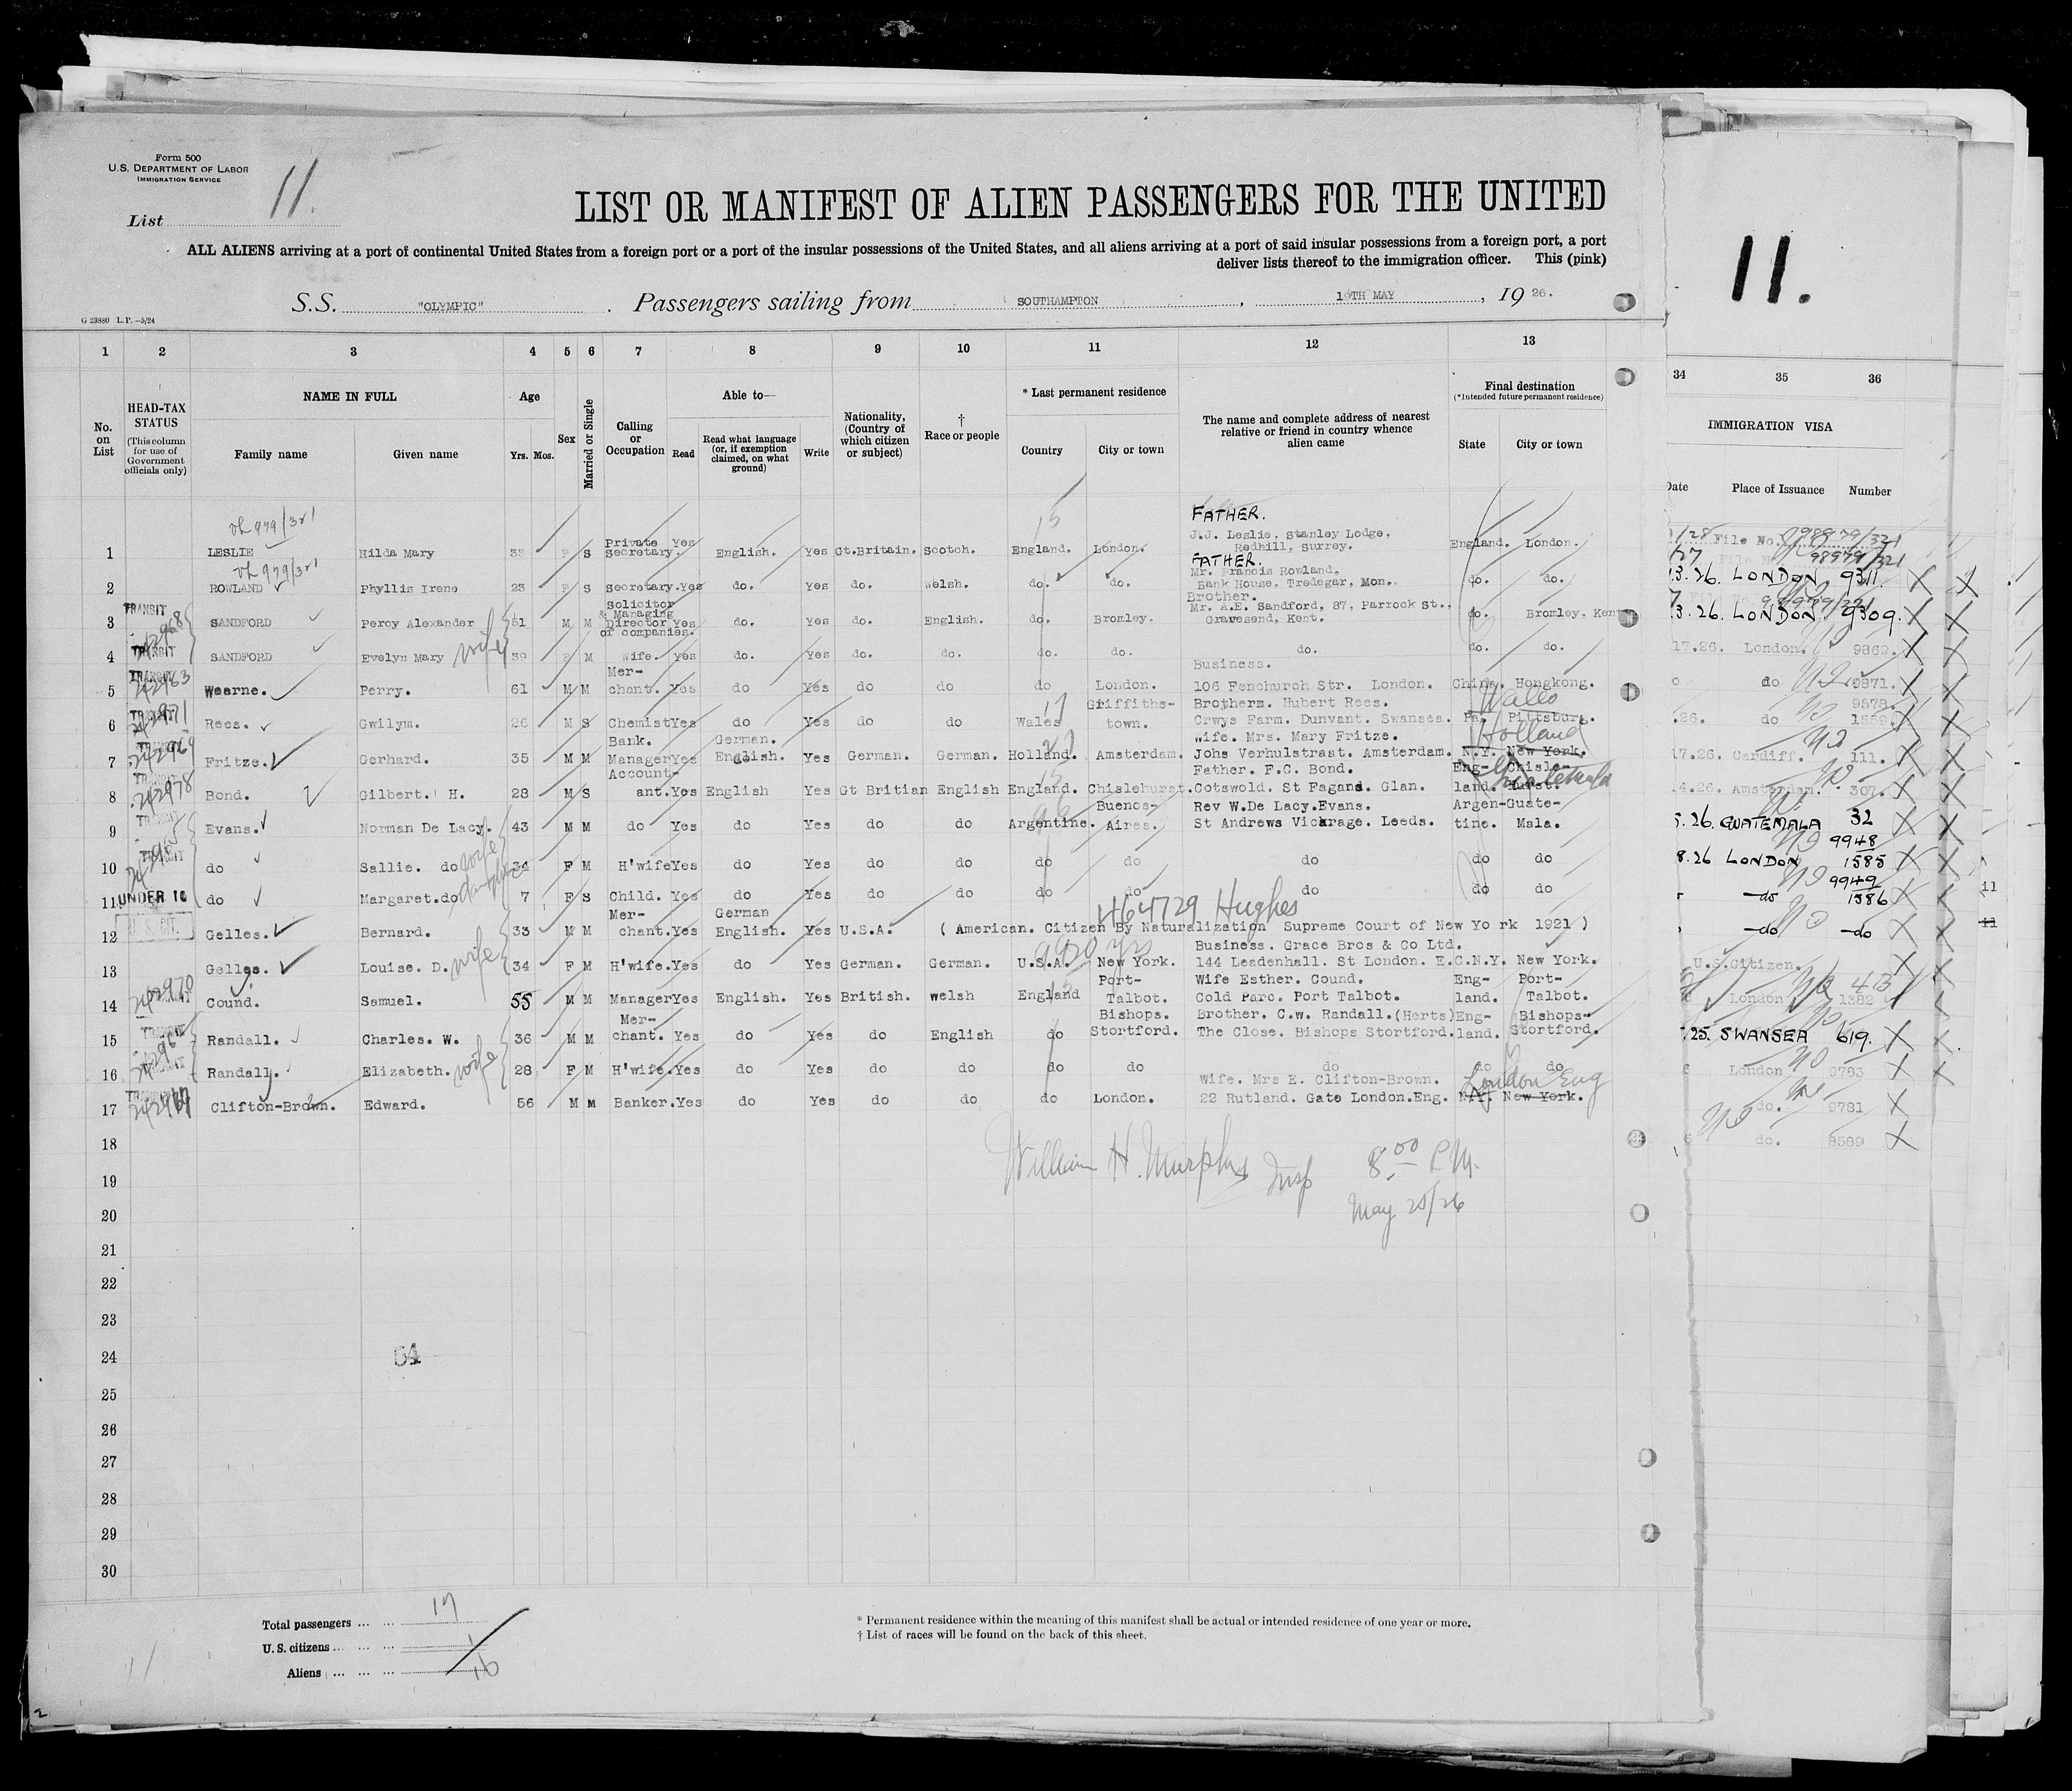 Form 500
U.S. DEPARTMENT OF LABOR
IMMIGRATION SERVICE
List 11.
LIST OR MANIFEST OF ALIEN PASSENGERS FOR THE UNITED
ALL ALIENS arriving at a port of continental United States from a foreign port or a port of the insular possessions of the United States, and all aliens arriving at a port of said insular possessions from a foreign port, a port
deliver lists thereof to the immigration officer. This (pink)
11.
S.S. "OLYMPIC" . Passengers sailing from SOUTHAMPTON , 19TH MAY , 19 26.
G 23880 L.P.—5/24
1 2 3 4 5 6 7 8 9 10 11 12 13 34 35 36
No. on List
HEAD-TAX STATUS
(This column for use of Government officials only)
NAME IN FULL
Family name Given name
Age
Yrs. Mos.
Sex
Married or Single
Calling or Occupation
Able to—
Read
Read what language (or, if exemption claimed, on what ground)
Write
Nationality, (Country of which citizen or subject)
† Race or people
* Last permanent residence
Country City or town
The name and complete address of nearest relative or friend in country whence alien came
Final destination
(*Intended future permanent residence)
State City or town
IMMIGRATION VISA
Date Place of Issuance Number
FATHER.
1 LESLIE Hilda Mary 33 F S Private secretary. Yes English. Yes Gt.Britain. Scotch. England. London. J.J. Leslie, Stanley Lodge, Redhill, Surrey. England. London. File No. 98979/321
FATHER.
2 ROWLAND Phyllis Irene 23 F S secretary. Yes do. Yes do. Welsh. do. do. Mr. Francis Rowland. Bank House, Tredegar, Mon. do. do. 3.26. LONDON 9311.
3 TRANSIT SANDFORD Percy Alexander 51 M M Solicitor & Managing Director of companies. Yes do. Yes do. English. do. Bromley. Brother. Mr. A.E. Sandford, 87, Parrock St., Gravesend, Kent. do. Bromley, Kent 3.26. LONDON 9309.
4 TRANSIT SANDFORD Evelyn Mary wife 39 F M Wife. Yes do. Yes do. do. do. do. do. do. do. 17.26. London. 9869.
5 TRANSIT Wearne. Perry. 61 M M Mer-chant. Yes do Yes do do do London. Business. 106 Fenchurch Str. London. China. Hongkong. do 9871.
6 Rees. Gwilym. 26 M S Chemist Yes do Yes do do Wales Griffiths-town. Brothers. Hubert Rees. Crwys Farm. Dunvant. Swansea. Pa. Pittsburg. Wales .26. do 9578. 1559.
7 Fritze. Gerhard. 35 M M Bank. Manager Yes German. English. Yes German. German. Holland. Amsterdam. Wife. Mrs. Mary Fritze. Johs Verhulstraat. Amsterdam. N.Y. New York. Holland 17.26. Cardiff. 111.
8 Bond. Gilbert. H. 28 M S Account-ant. Yes English Yes Gt Britian English England. Chislehurst. Father. F.C. Bond. Cotswold. St Fagand. Glan. Eng-land. Chisle-hurst. 4.26. Amsterdam. 307.
9 Evans. Norman De Lacy. 43 M M do Yes do Yes do do Argentine. Buenos-Aires. Rev W.De Lacy.Evans. St Andrews Vicarage. Leeds. Argen-tine. Guate-Mala. 5.26. GUATEMALA 32
10 TRANSIT do Sallie. do wife 34 F M H'wife Yes do Yes do do do do do do do 8.26 LONDON 9948 1585
11 UNDER 16 do Margaret.do daughter 7 F S Child. Yes do Yes do do do do do do do do 9949 1586
12 U.S. CIT. Gelles. Bernard. 33 M M Mer-chant. Yes German English. Yes U.S.A. ( American. Citizen By Naturalization Supreme Court of New Yo rk 1921 ) 464729 Hughes do do
13 Gelles. Louise. D. wife 34 F M H'wife. Yes do Yes German. German. U.S.A. New York. Business. Grace Bros & Co Ltd. 144 Leadenhall. St London. E.C. N.Y. New York. U.S.Citizen.
14 Cound. Samuel. 55 M M Manager Yes English. Yes British. welsh England Port-Talbot. Wife Esther. Cound. Cold Parc. Port Talbot. Eng-land. Port-Talbot. London 1382
15 TRANSIT Randall. Charles. W. 36 M M Mer-chant. Yes do Yes do English do Bishops. Stortford. Brother. C.w. Randall.(Herts) The Close. Bishops Stortford. Eng-land. Bishops-Stortford. 25. SWANSEA 619.
16 Randall. Elizabeth. wife 28 F M H'wife. Yes do Yes do do do do do do do London 9783
17 TRANSIT Clifton-Brown. Edward. 56 M M Banker. Yes do Yes do do do London. Wife. Mrs E. Clifton-Brown. 22 Rutland. Gate London.Eng. N.Y. New York. London Eng do. 9781
18 do. 8589
William H. Murphy Insp 8.00 P.M.
May 25/26
19
20
21
22
23
24 64
25
26
27
28
29
30
Total passengers ... ... 17
U.S. citizens ... ... ... 1
Aliens ... ... ... 16
* Permanent residence within the meaning of this manifest shall be actual or intended residence of one year or more.
† List of races will be found on the back of this sheet.